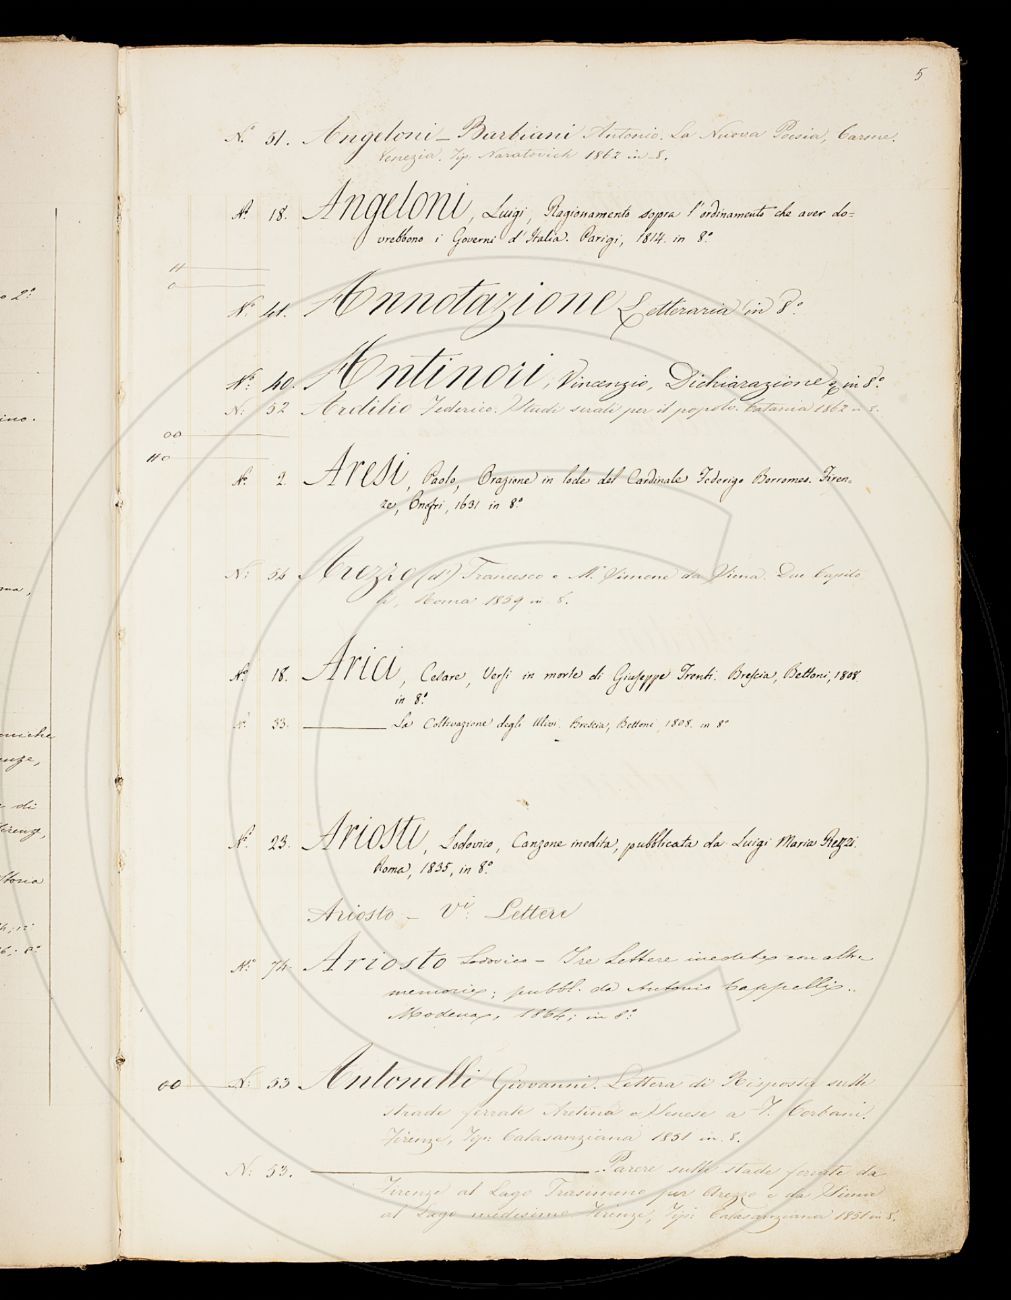 5
N.° 51. Angeloni - Barbiani Antonio. La Nuova Poesia, Carme.
Venezia. Tip. Naratovich 1862 in 8.
N.° 18. Angeloni, Luigi, Ragionamento sopra l'ordinamento che aver do=
vrebbono i Governi d'Italia. Parigi, 1814. in 8.°
N.° 41. Annotazione Letteraria in 8.°
N.° 40. Antinori, Vincenzio, Dichiarazione, in 8.°
N. 52 Federico. Studi serali per il popolo. Catania 1862 in 8.
N.° 2. Aresi, Paolo, Orazione in lode del Cardinale Federigo Borromeo. Firen=
ze, Onofri, 1631 in 8.°
N.° 54 Arezzo (d') Francesco e M. Simone da Siena. Due Capito
li, Roma 1859 in 8.
N.° 18. Arici, Cesare, Versi in morte di Giuseppe Trenti. Brescia, Bettoni, 1808
in 8.°
N. 33. La Coltivazione degli Ulivi. Brescia, Bettoni, 1808. in 8.°
N.° 23. Ariosti, Lodovico, Canzone inedita, pubblicata da Luigi Maria Rezzi.
Roma, 1835, in 8.°
Ariosto - Vi. Lettere
N.° 74. Ariosto Lodovico - Tre Lettere inedite con altre
memorie; pubbl. da Antonio Cappelli.
Modena, 1864; in 8.°
00 N. 53 Antonelli Giovanni. Lettera di Risposta sulle
strade ferrate Aretina e Senese a T. Corbani.
Firenze, Tip: Calasanziana 1851 in 8.
N. 53. Parere sulle stade ferrate da
Firenze al Lago Trasimeno per Arezzo e da Siena
al Lago medesimo Firenze, Tip: Calasanziana 1851 in 8.